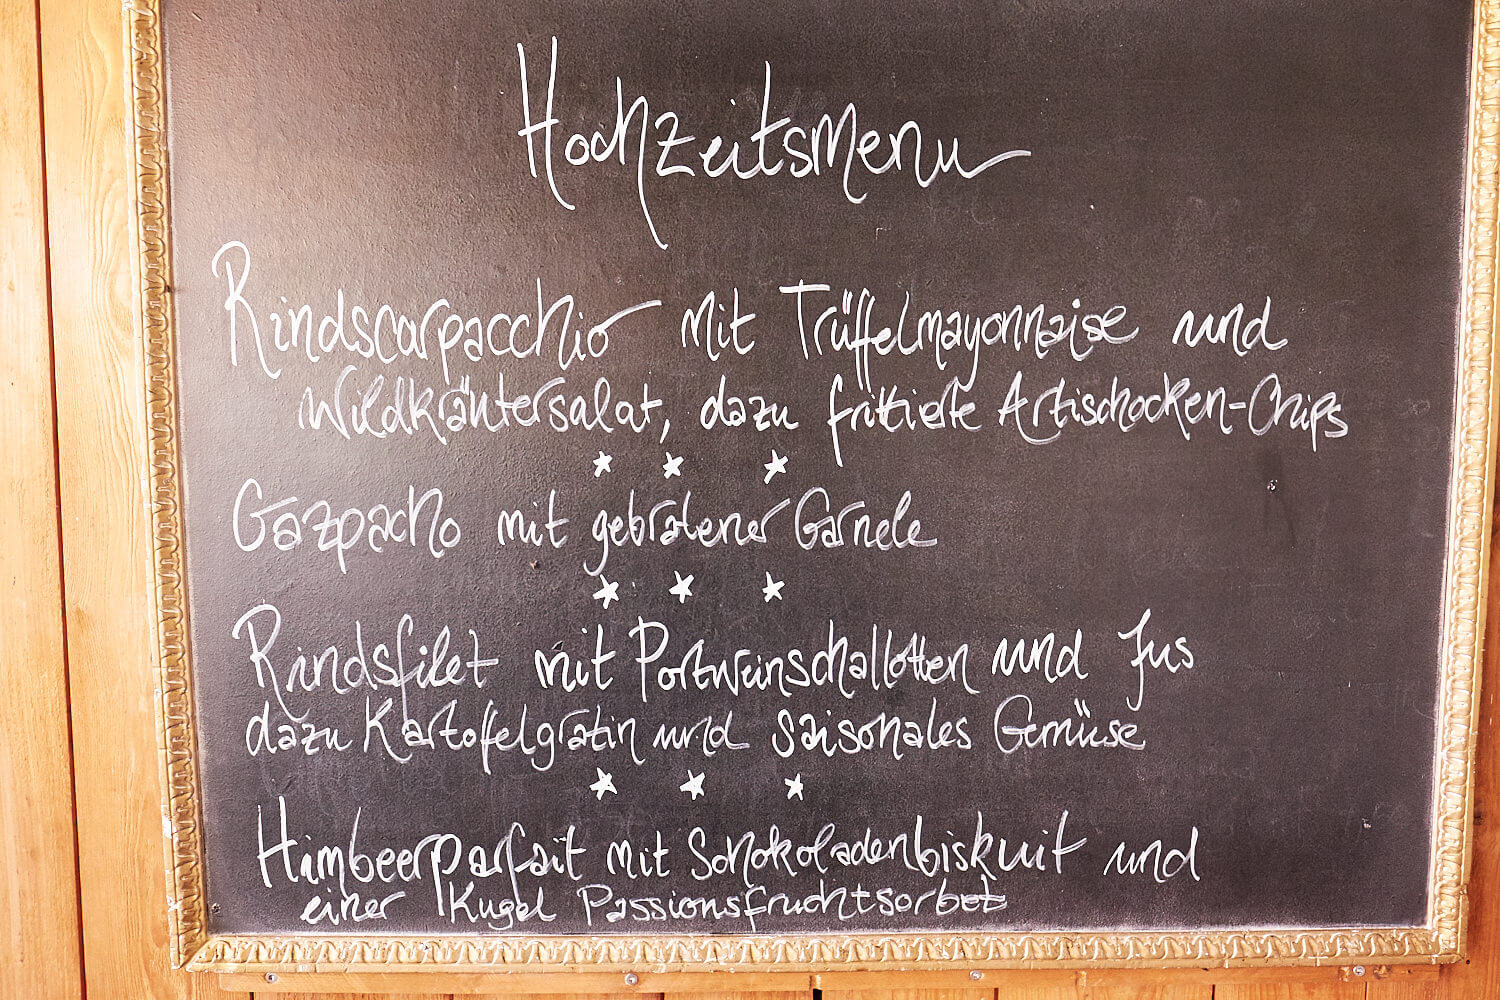 Hochzeitsmenu
Rindscarpacchio mit Trüffelmayonnaise und
Wildkräutersalat, dazu frittierte Artischocken-Chips
* * *
Gazpacho mit gebratener Garnele
* * *
Rindsfilet mit Portweinschallotten und Jus
dazu Kartoffelgratin und saisonales Gemüse
* * *
Himbeerparfait mit Schokoladenbiskuit und
einer Kugel Passionsfruchtsorbet